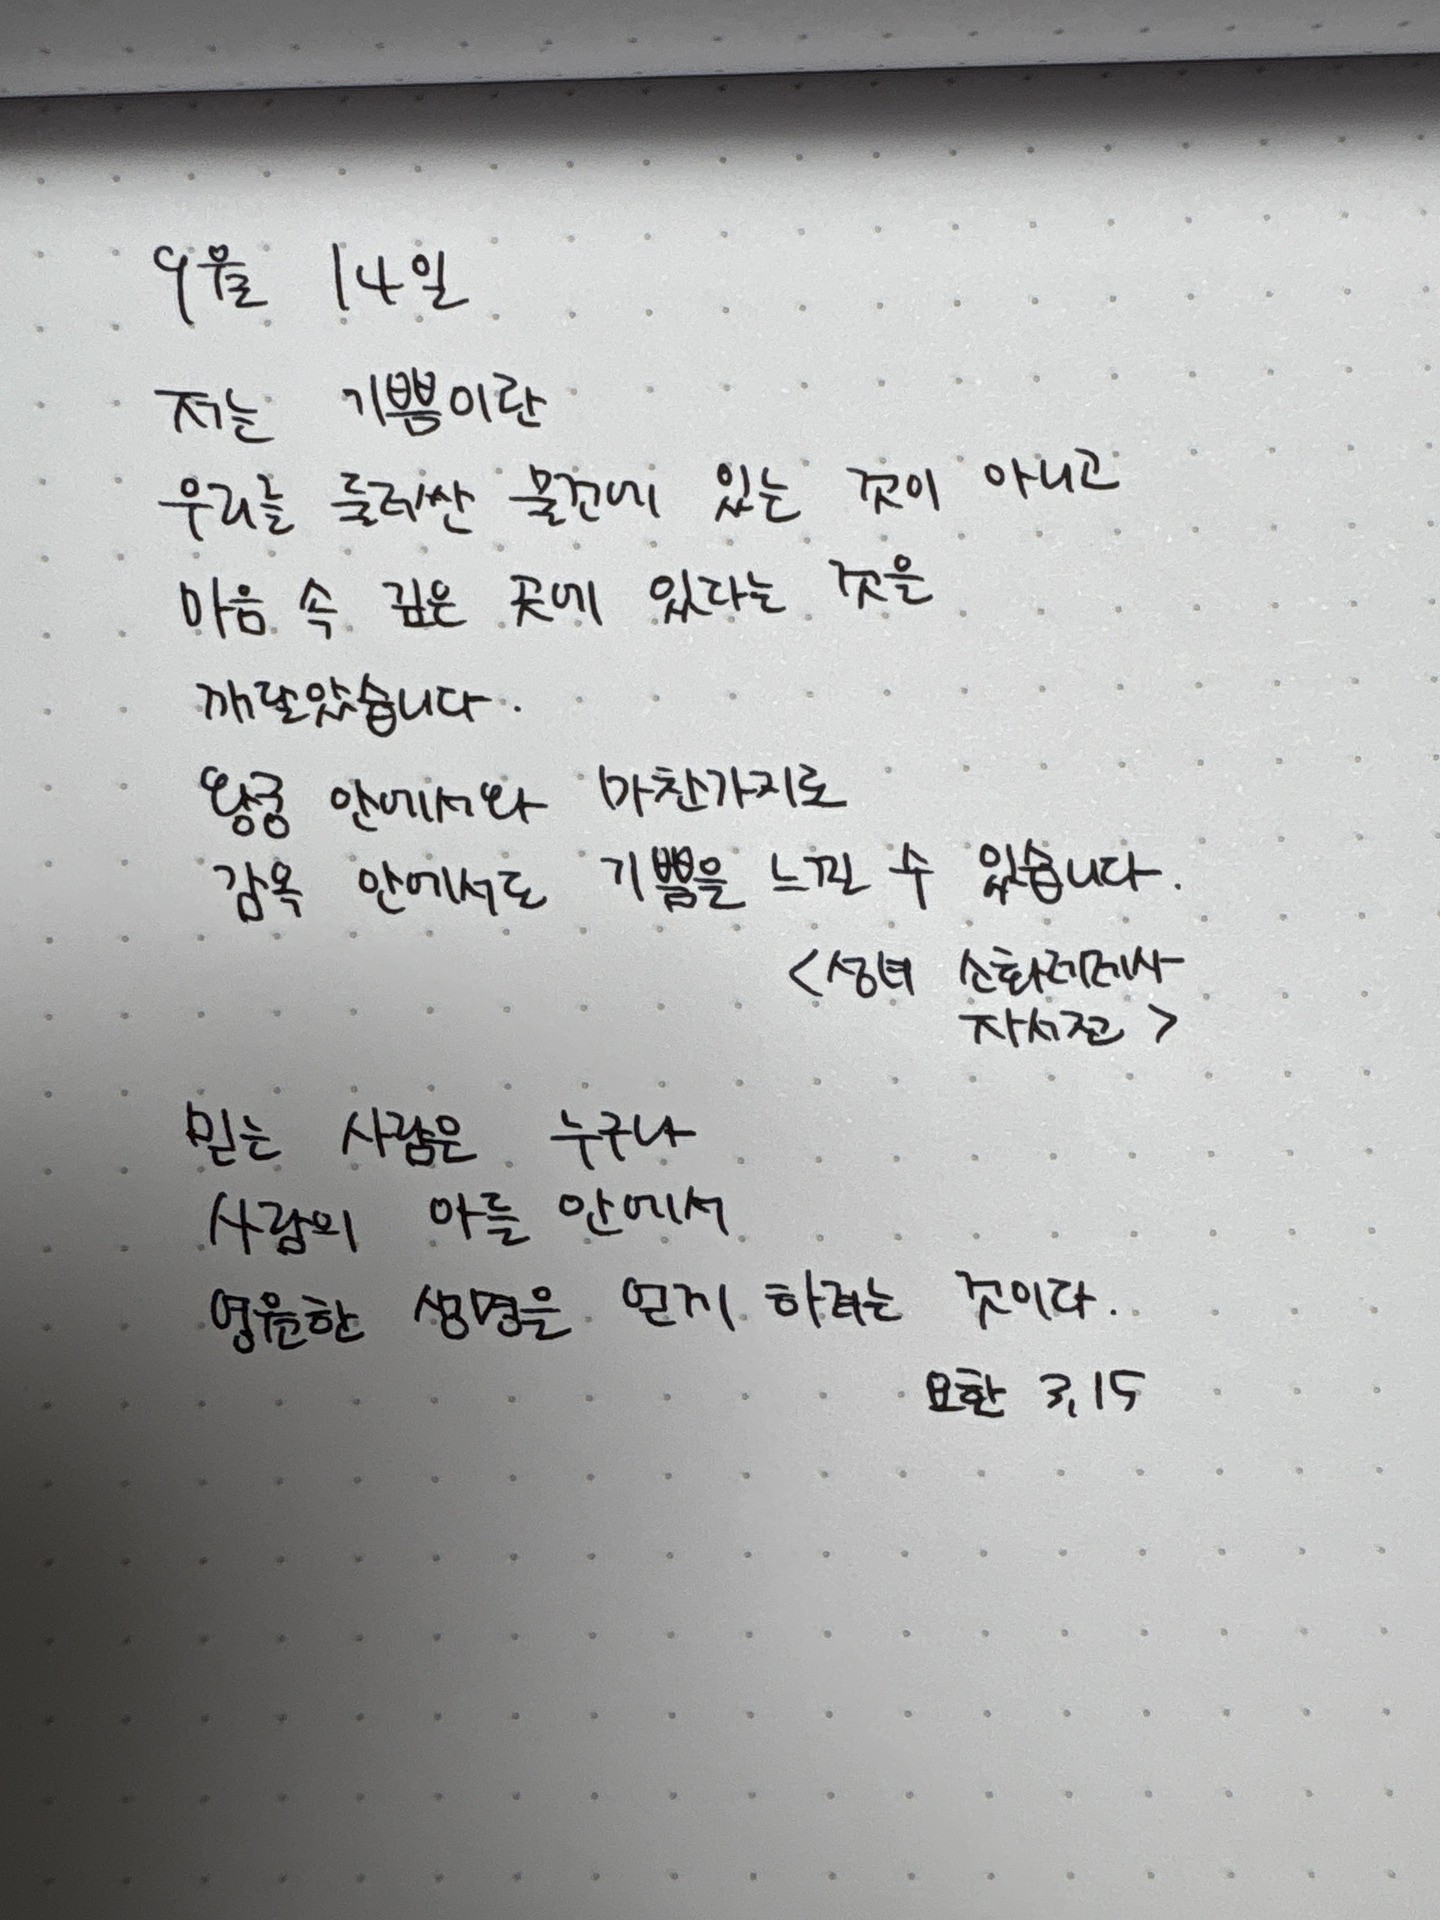 9월 14일
저는 기쁨이란
우리를 둘러싼 물건에 있는 것이 아니고
마음 속 깊은 곳에 있다는 것을
깨달았습니다.
왕궁 안에서와 마찬가지로
감옥 안에서도 기쁨을 느낄 수 있습니다.
<성녀 소화데레사
자서전>
믿는 사람은 누구나
사람의 아들 안에서
영원한 생명을 얻게 하려는 것이다.
요한 3,15